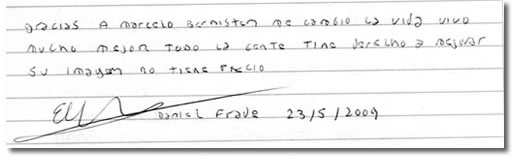 gracias A marcelo Bernisten me cambio la vida vivo
mucho mejor todo la gente tine derecho a mejorar
su imagen no tiene precio
Daniel Frade 23/5/2009